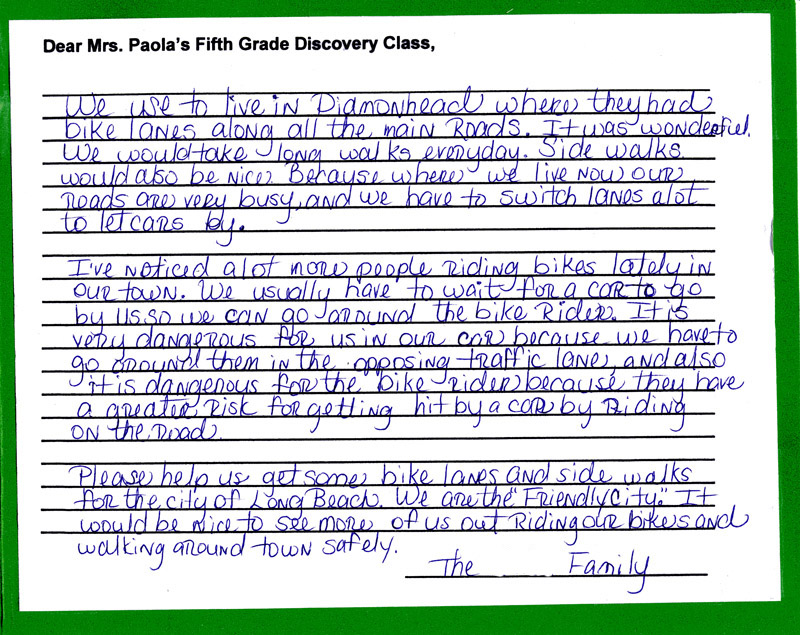 Dear Mrs. Paola's Fifth Grade Discovery Class,
We use to live in Diamonhead where they had
bike lanes along all the main Roads. It was wonderful.
We would take long walks everyday. Side walks
would also be nice. Because where we live now our
Roads are very busy, and we have to switch lanes alot
to let cars by.
I've noticed alot more people riding bikes lately in
our town. We usually have to wait for a car to go
by us, so we can go around the bike Rider. It is
very dangerous for us in our car because we have to
go around them in the opposing traffic lane, and also
it is dangerous for the bike rider because they have
a greater risk for getting hit by a car by Riding
on the road.
Please help us get some bike lanes and side walks
for the city of Long Beach. We are the "Friendly City." It
would be nice to see more of us out Riding our bikes and
walking around town safely.
The Family